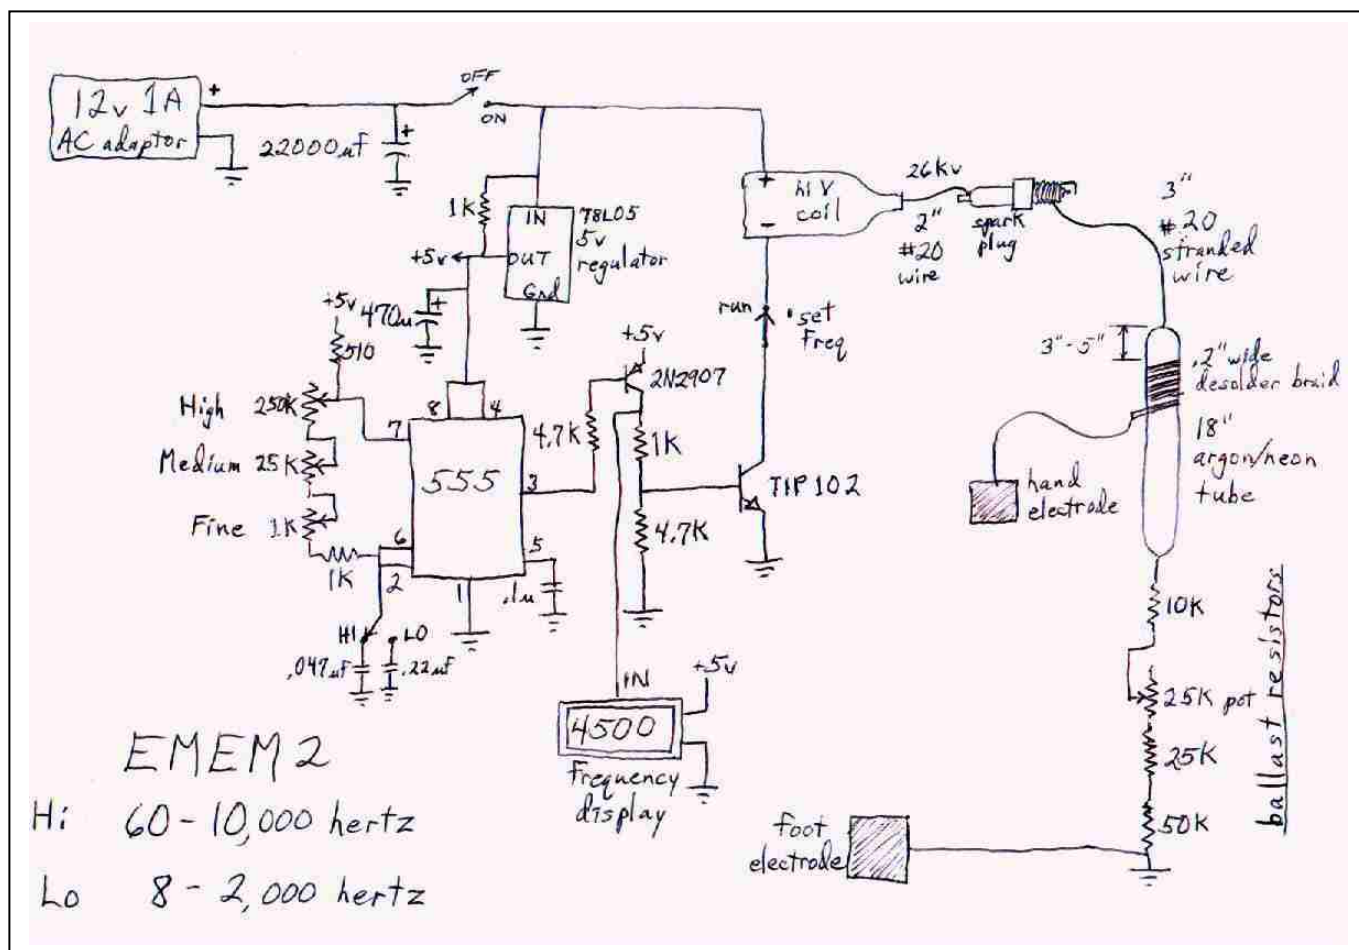 12v 1A
AC adaptor
+
22000uf
+
OFF
ON
1K
IN
OUT
Gnd
78L05
5v
regulator
+5v
470u
+
+5v
510
High 250K
Medium 25K
Fine 1K
1K
7
8
4
555
3
6
2
1
5
.1u
HI
LO
.047uF
.22uF
4.7K
+5v
2N2907
1K
4.7K
TIP102
run
set
freq
+
-
hi V
coil
26kv
2"
#20
wire
spark
plug
3"
#20
stranded
wire
3"-5"
.2" wide
desolder braid
18"
argon/neon
tube
hand
electrode
10K
25K pot
25K
50K
ballast resistors
foot
electrode
IN
4500
+5v
frequency
display
EMEM2
Hi 60-10,000 hertz
Lo 8-2,000 hertz